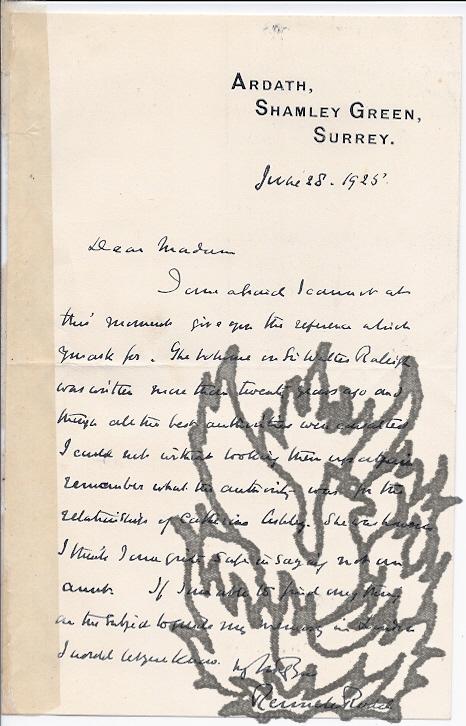 ARDATH,
SHAMLEY GREEN,
SURREY.
June 28. 1925
Dear Madam
I am afraid I cannot at
this moment give you the reference which
you ask for. The volume on Sir Walter Raleigh
was written more than twenty years ago and
though all the best authorities were consulted
I could not without looking them up again
remember what the authority was for the
relationship of Catherine Ashley. She was however
I think I am quite safe in saying not an
aunt. If I am able to find anything
on the subject to guide my memory in London
I would let you know.
Rennell Rodd